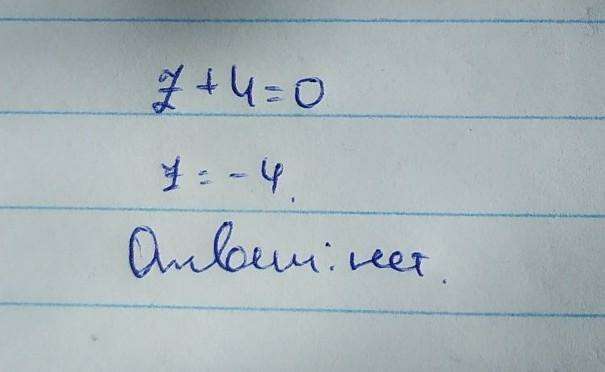 z + 4 = 0
z = - 4.
Ответ: нет.